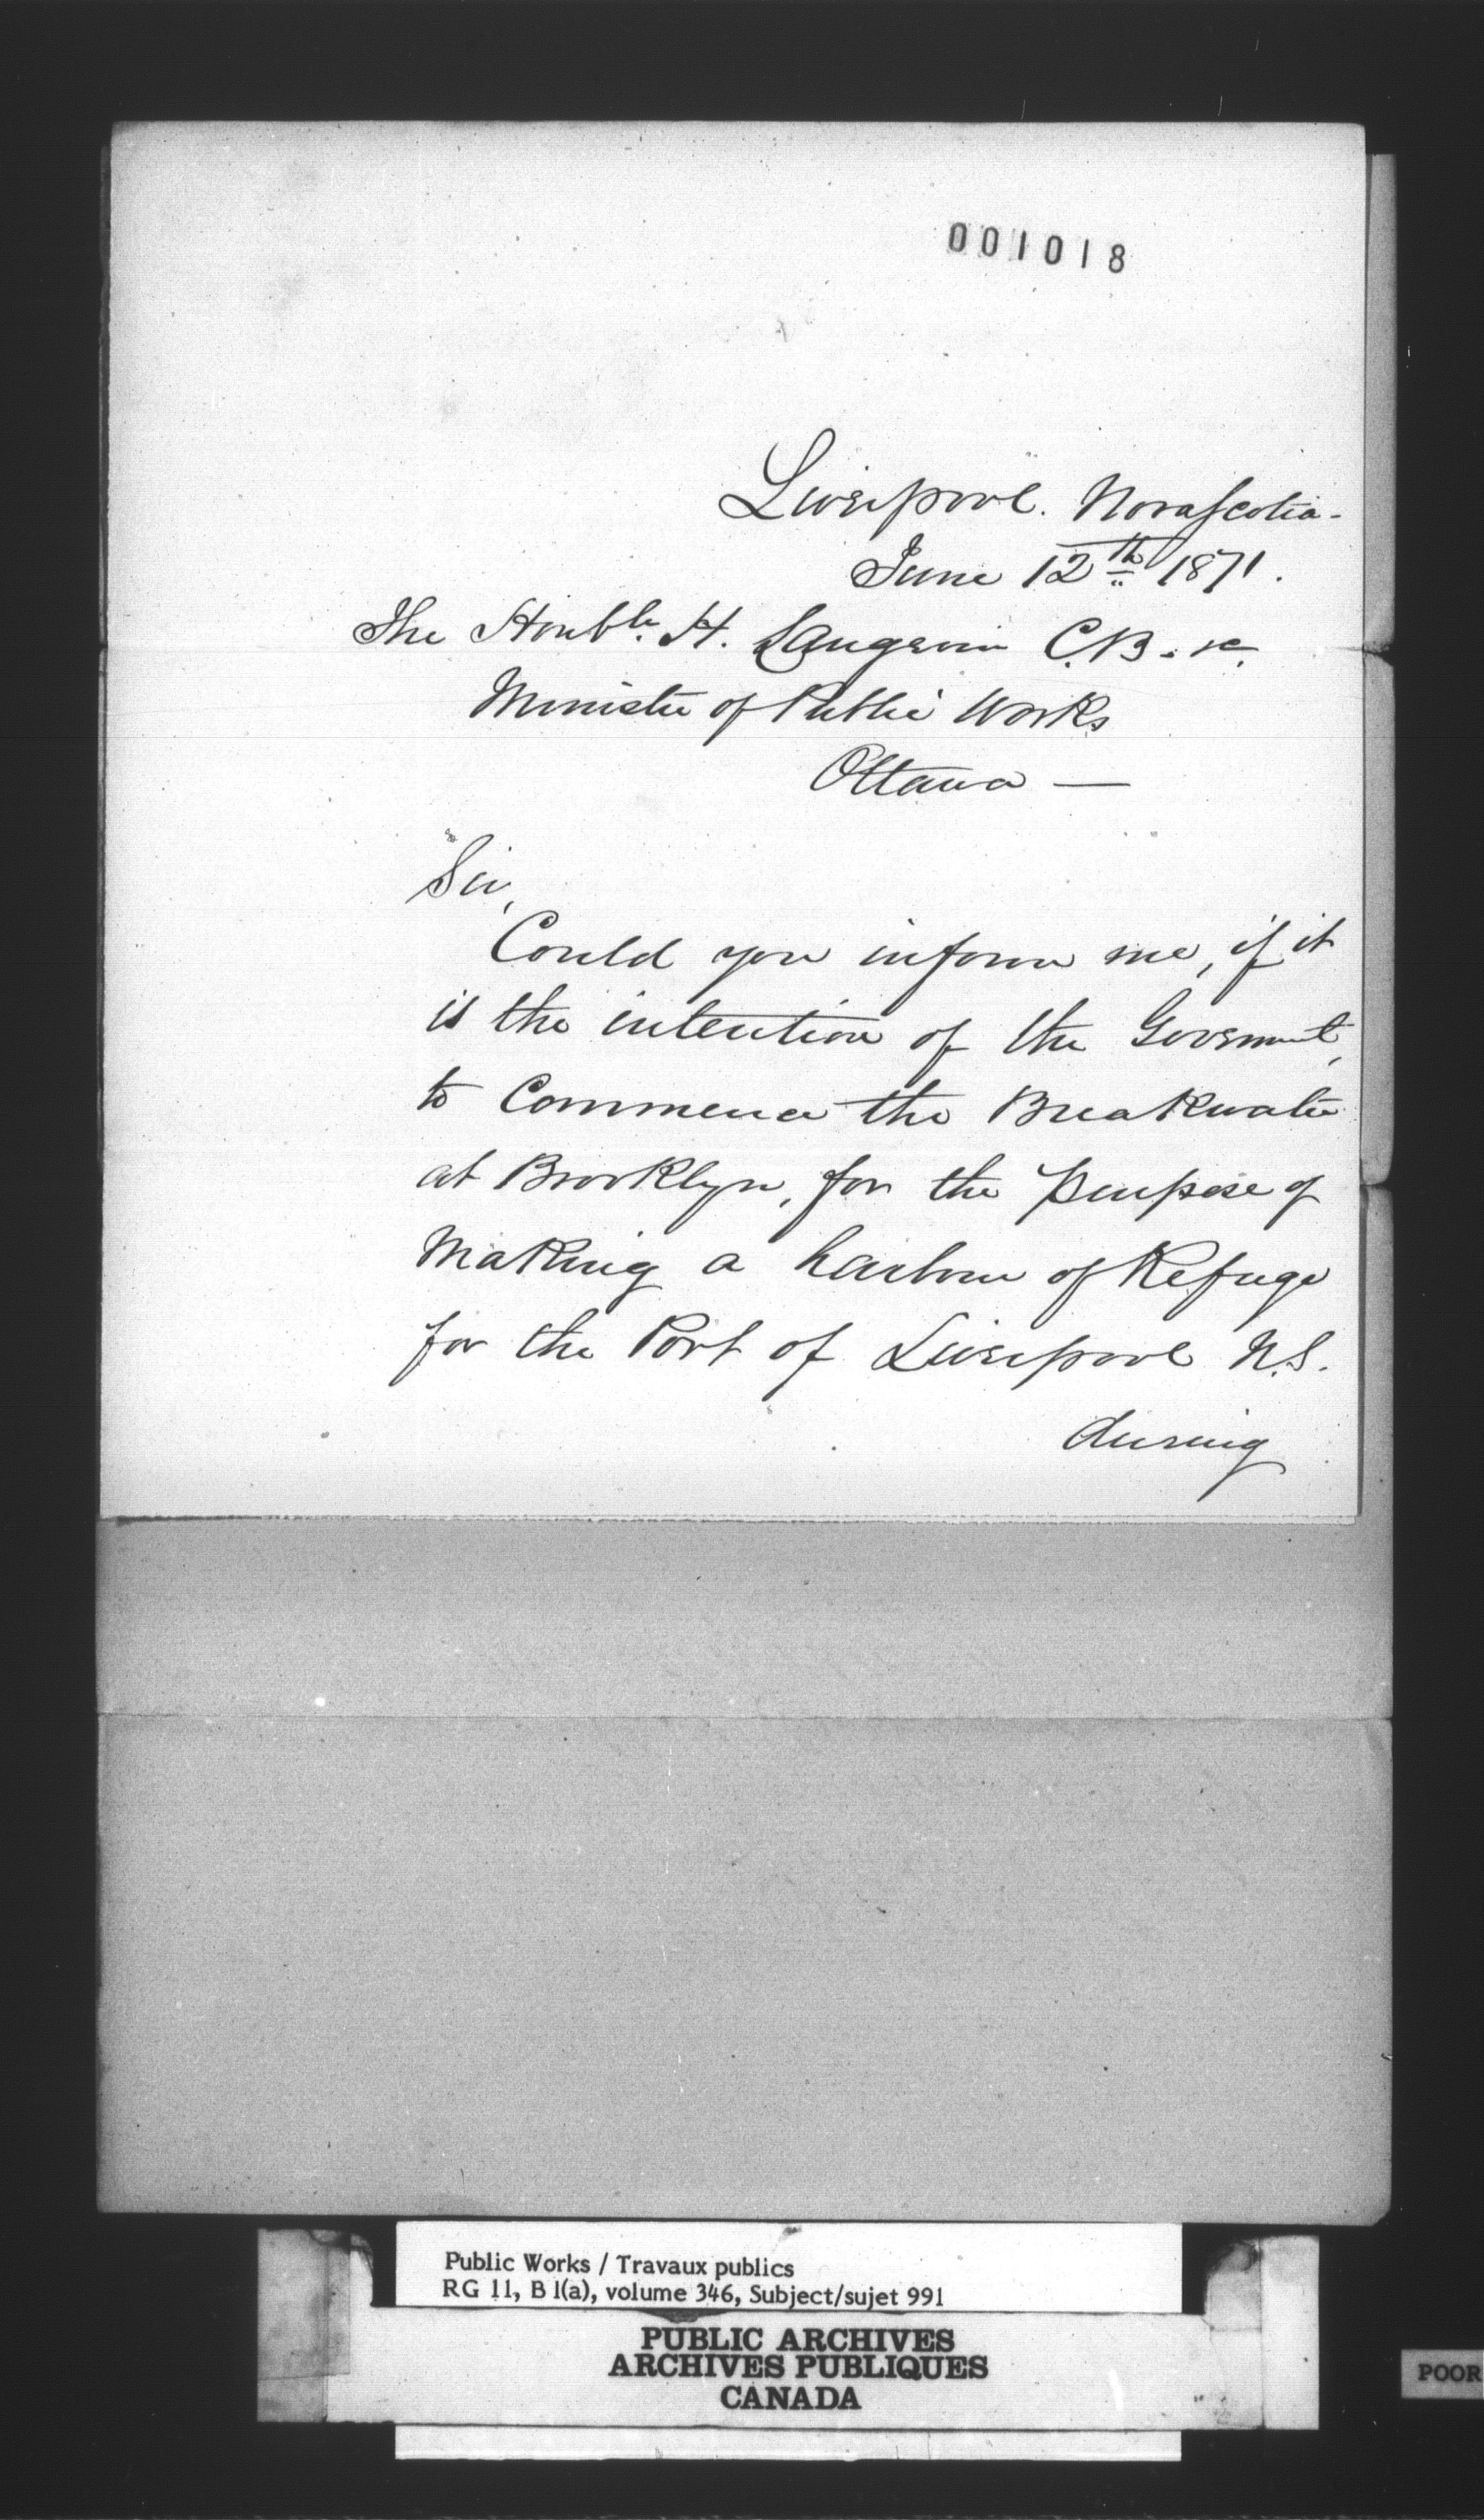 001018
Liverpool. Nova Scotia -
June 12th 1871.
The Honble. H. Langevin C.B. &c,
Minister of Public Works
Ottawa —
Sir,
Could you inform me, if it
is the intention of the Government,
to Commence the Breakwater
at Brooklyn, for the purpose of
Making a harbour of Refuge
for the Port of Liverpool N.S.
during
Public Works / Travaux publics
RG 11, B 1(a), volume 346, Subject/sujet 991
PUBLIC ARCHIVES
ARCHIVES PUBLIQUES
CANADA
POOR